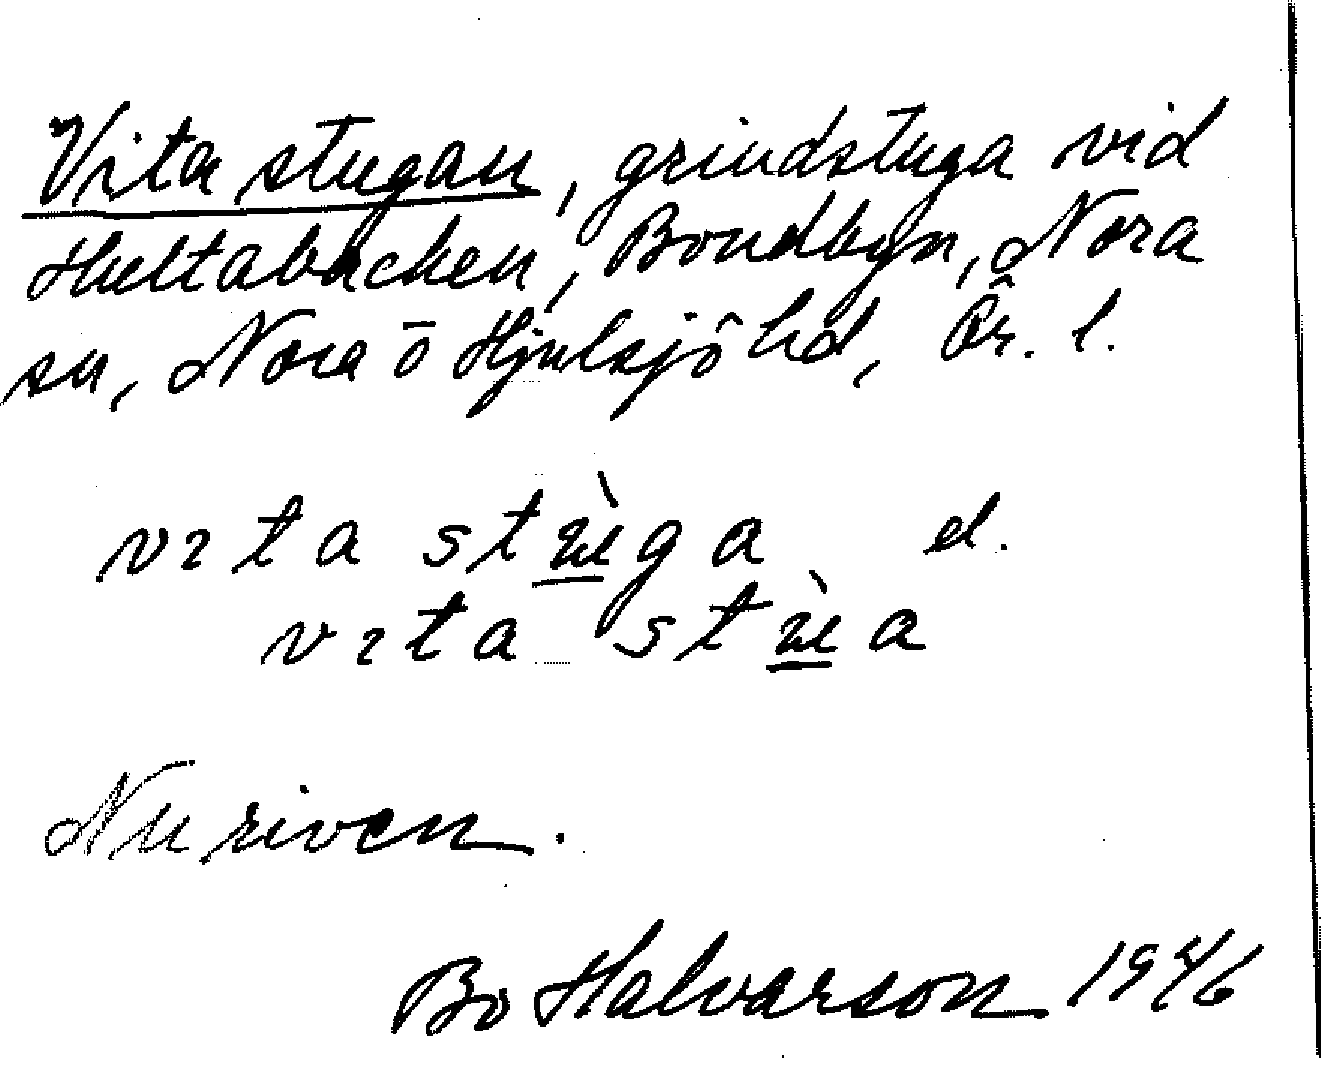 Vita stugan, grindstuga vid
Hultabacken, Bondbyn, Nora
sn, Nora o Hjulsjö hd, Ör. l.
vıta stù̲ga el.
vıta stù̲a
Nu riven.
Bo Halvarson 1946